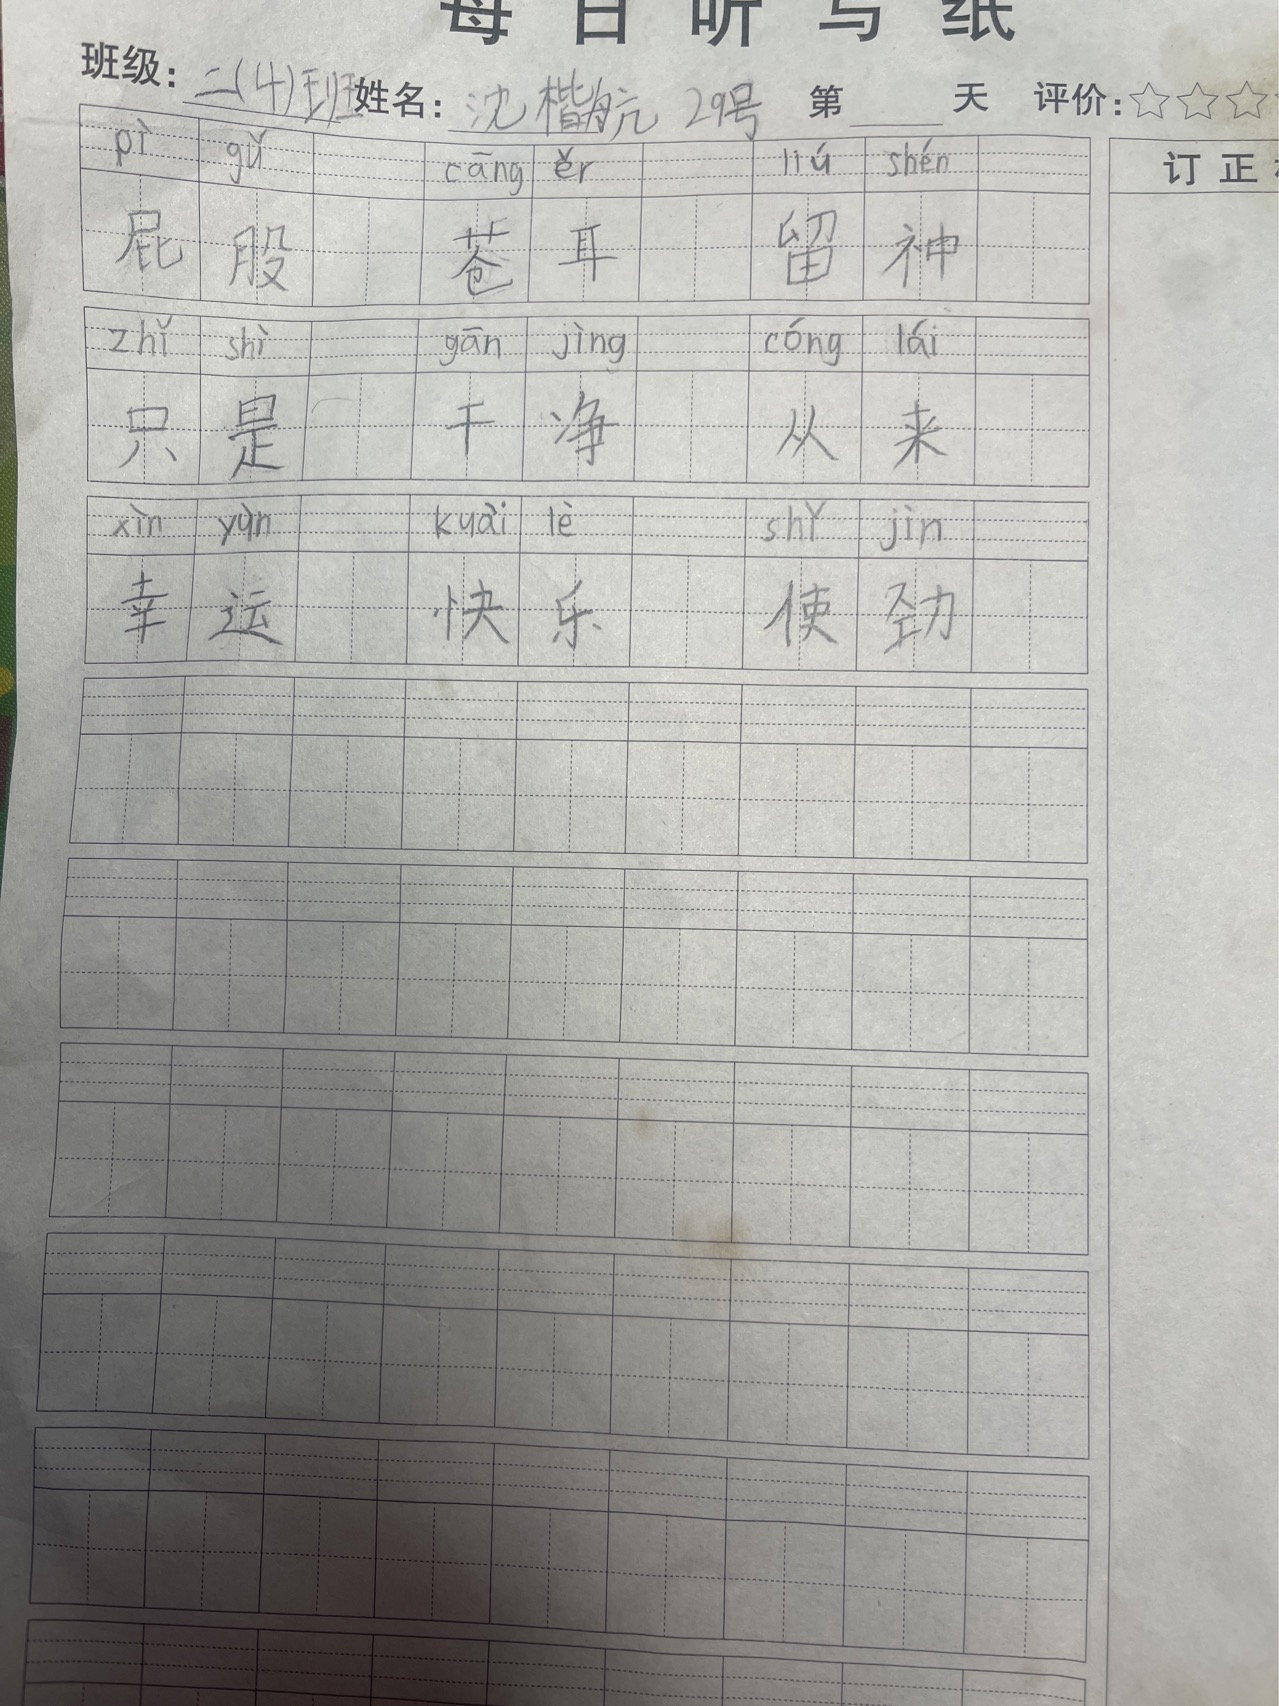 每日听写纸
班级：二(4)班 姓名：沈楷航 29号 第 天 评价：☆☆☆
pì gǔ cāng ěr liú shén
订正
屁股 苍耳 留神
zhǐ shì gān jìng cóng lái
只是 干净 从来
xìn yùn kuài lè shǐ jìn
幸运 快乐 使劲